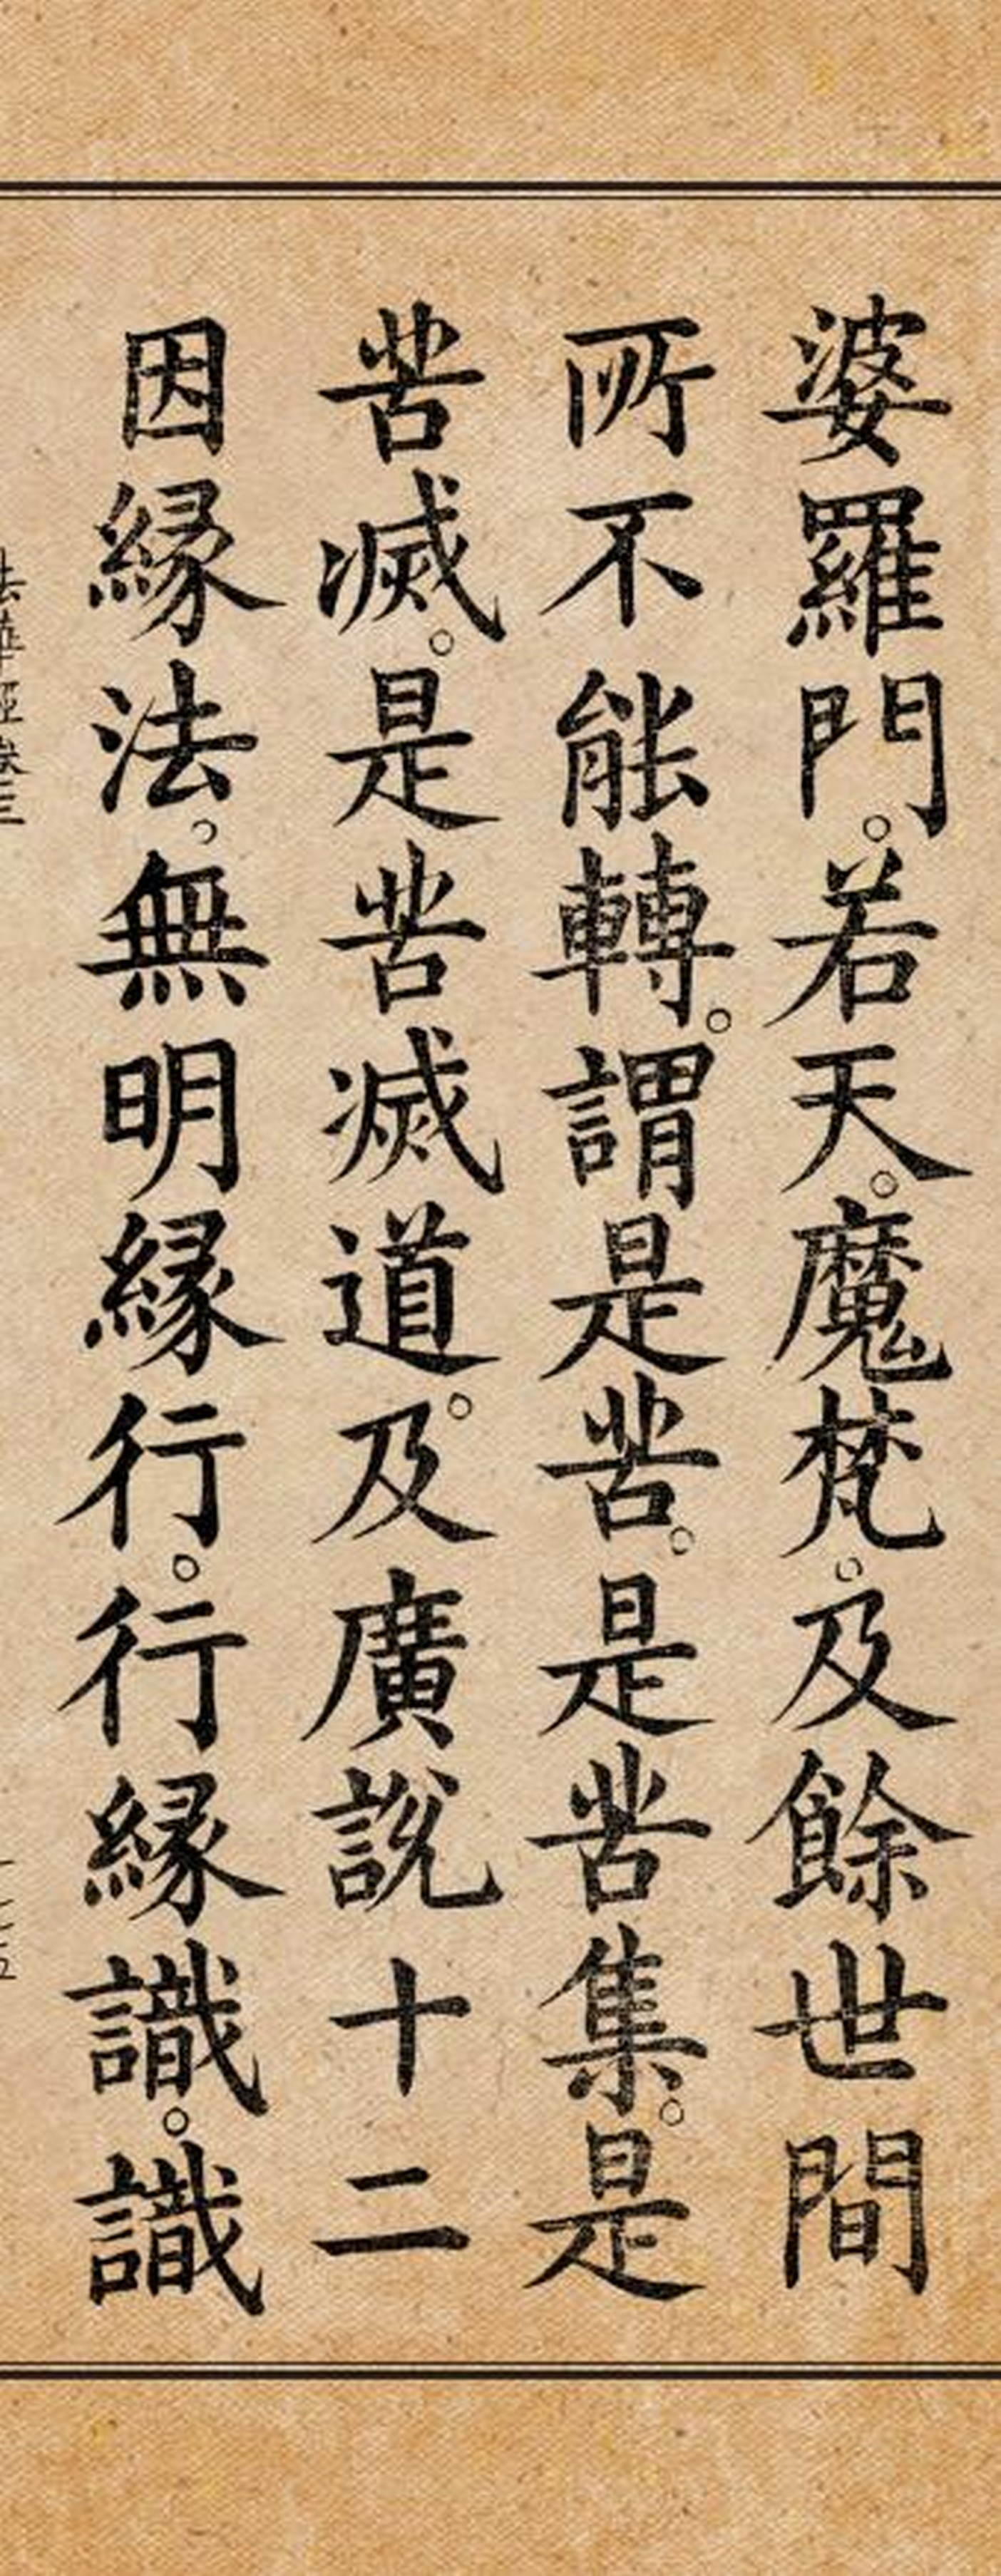 婆羅門。若天。魔梵。及餘世間
所不能轉。謂是苦。是苦集。是
苦滅。是苦滅道。及廣說十二
因緣法。無明緣行。行緣識。識
法華經卷三